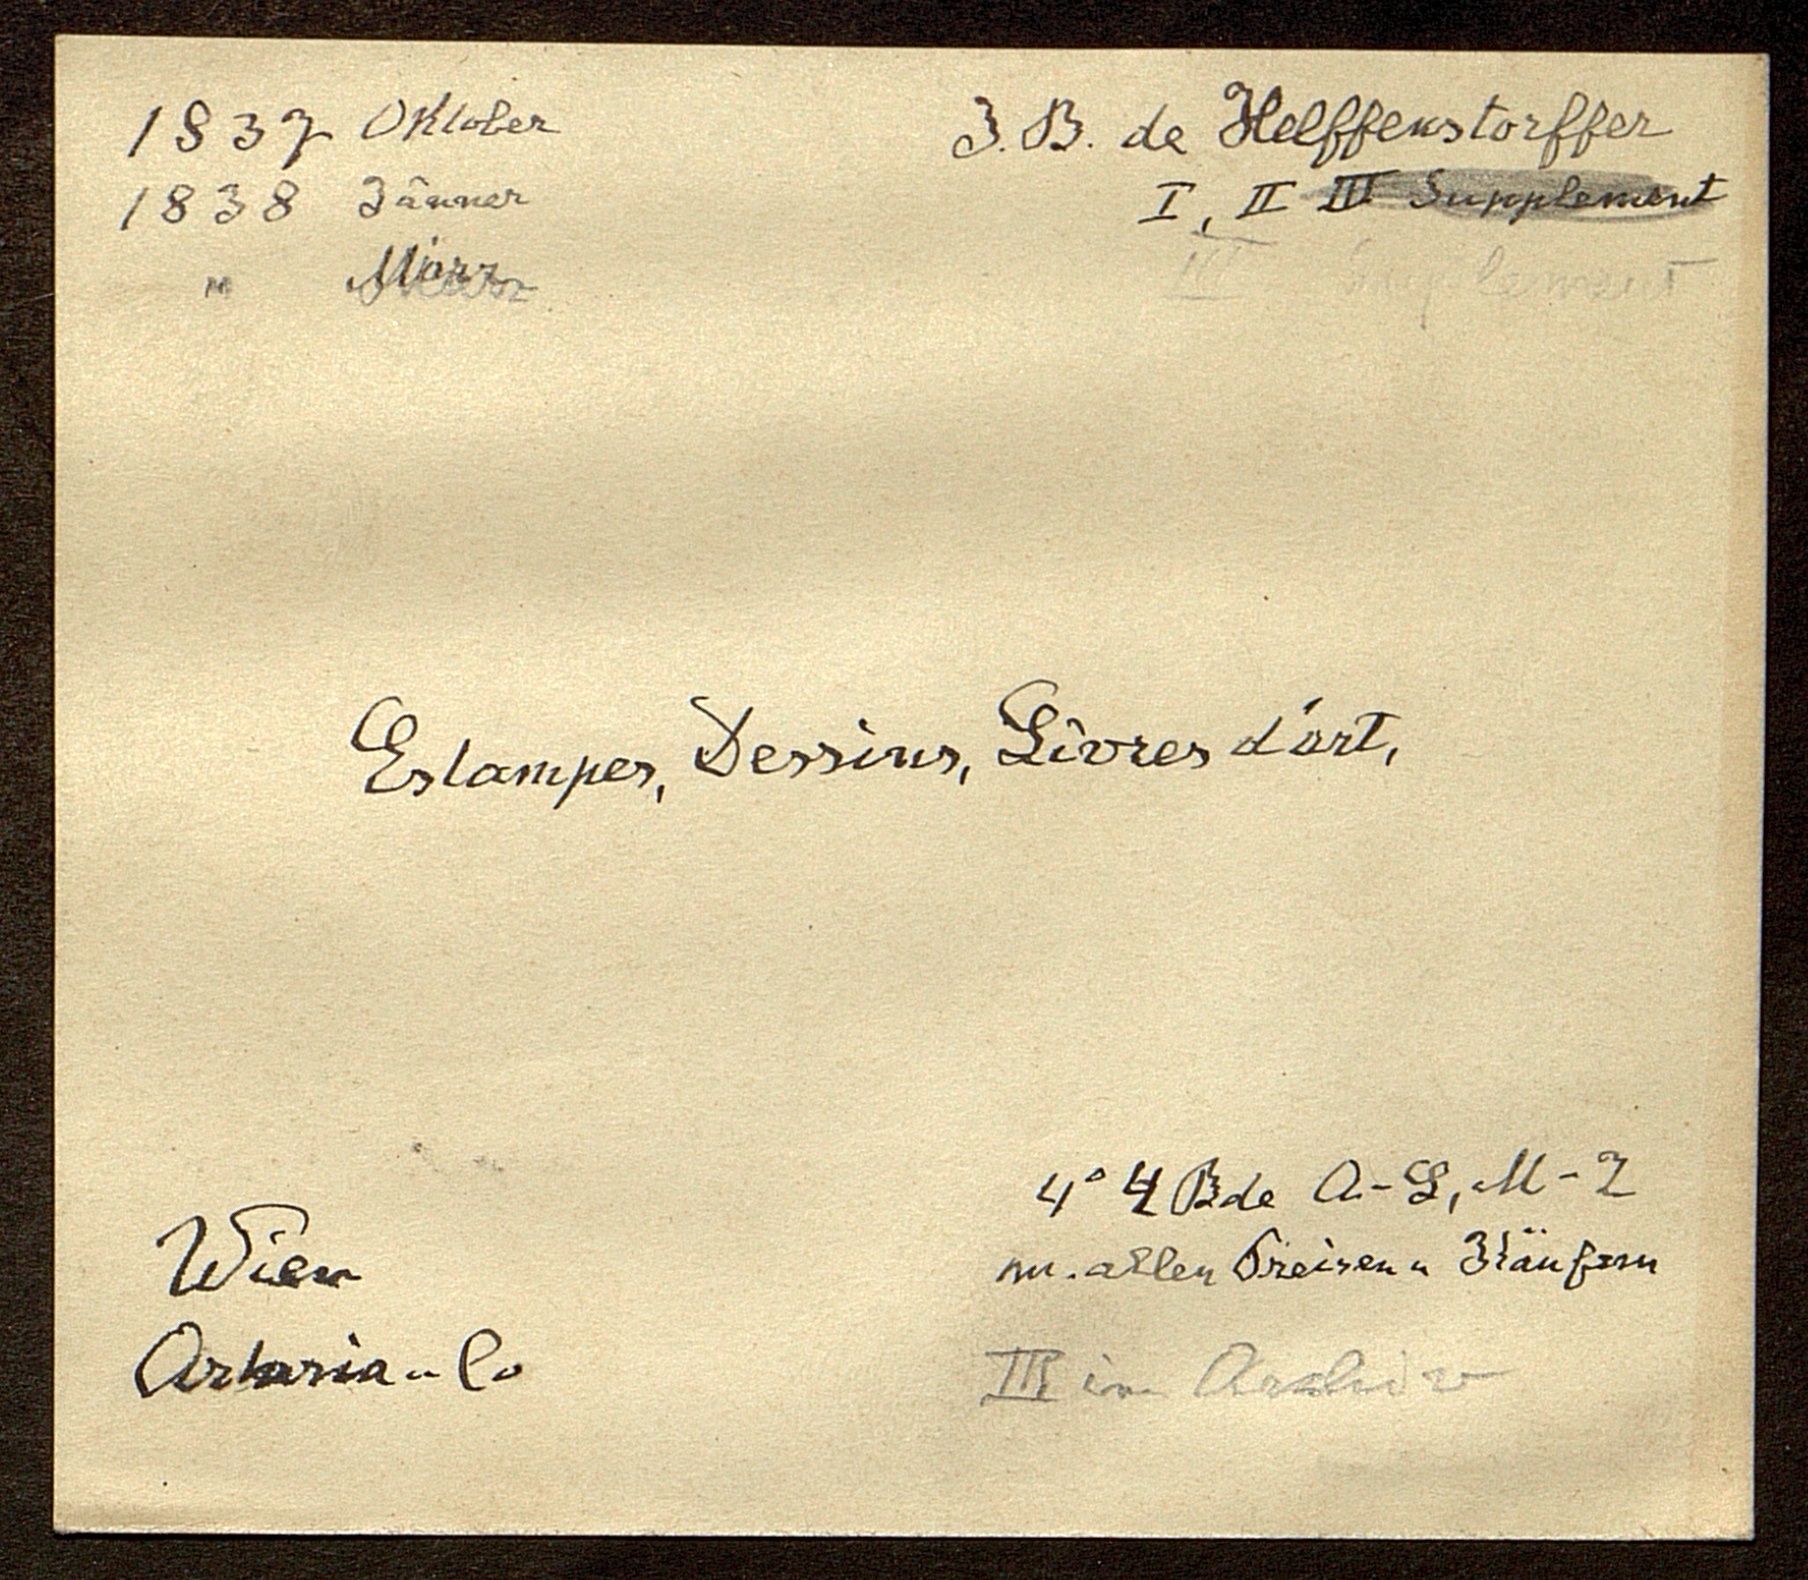 1837 Oktober
J. B. de Helffenstorffer
1838 Jänner
I, II III Supplement
" März
III Supplement
Estampes, Dessins, Livres d'art,
4° 4 Bde A-L, M-Z
m. allen Preisen u Käufern
Wien
Artaria u Co
III im Archiv